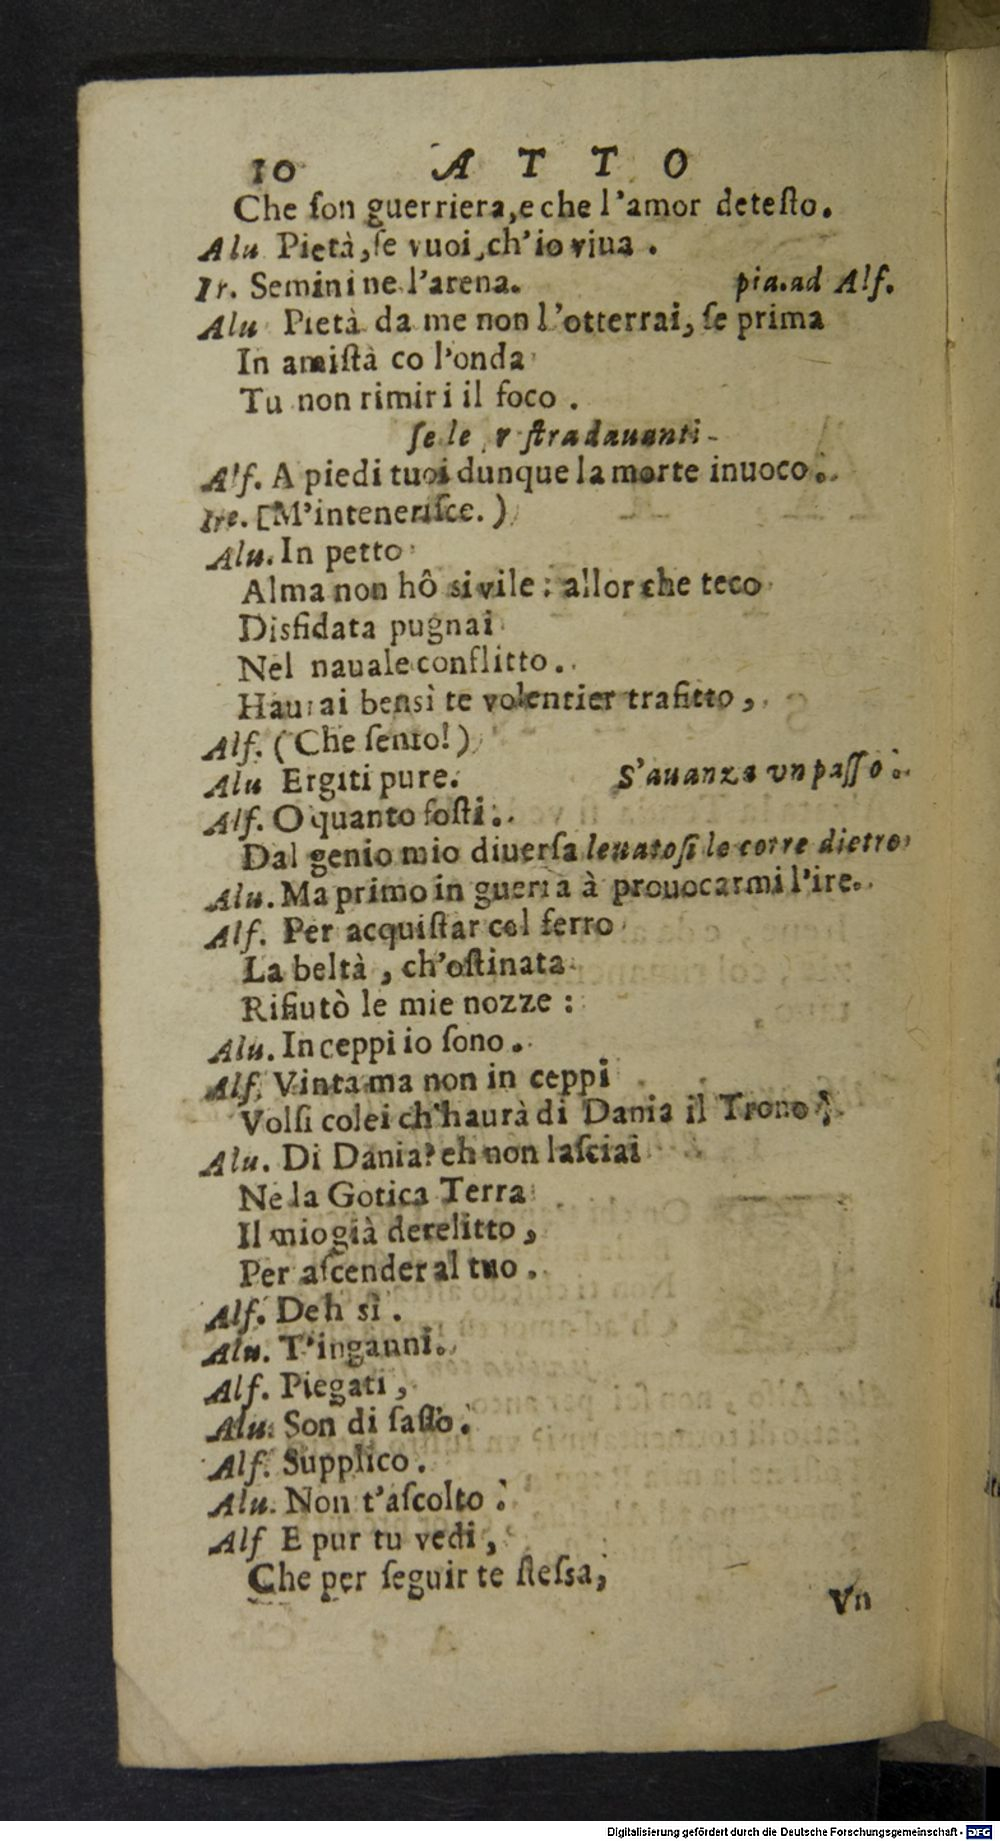 10 ATTO
Che ſon guerriera,e che l'amor deteſto.
Alu Pietà,ſe vuoi,ch'io viua .
Ir. Semini ne l'arena. pia.ad Alf.
Alu Pietà da me non l'otterrai, ſe prima
In amiſtà co l'onda
Tu non rimiri il foco .
ſe le ſtra dauanti
Alf. A piedi tuoi dunque la morte inuoco.
Ire. [M'inteneriſce.)
Alu. In petto
Alma non hô si vile : allor che teco
Disfidata pugnai
Nel nauale conflitto.
Haurai bensì te volentier trafitto ,
Alf. (Che ſento!)
Alu Ergiti pure. S'auanza vn paſſo .
Alf. O quanto foſti.
Dal genio mio diuerſa leuatoſi le corre dietro
Alu. Ma primo in guerra à prouocarmi l'ire.
Alf. Per acquiſtar col ferro
La beltà , ch'oſtinata
Rifiutò le mie nozze :
Alu. In ceppi io ſono .
Alf. Vinta ma non in ceppi
Volſi colei ch'haurà di Dania il Trono
Alu. Di Dania? eh non laſciai
Ne la Gotica Terra
Il mio già derelitto ,
Per aſcender al tuo .
Alf. Deh sì .
Alu. T'inganni.
Alf. Piegati ,
Alu. Son di ſaſſo.
Alf. Supplico .
Alu. Non t'aſcolto .
Alf E pur tu vedi ,
Che per ſeguir te ſteſsa,
Vn
Digitalisierung gefördert durch die Deutsche Forschungsgemeinschaft - DFG